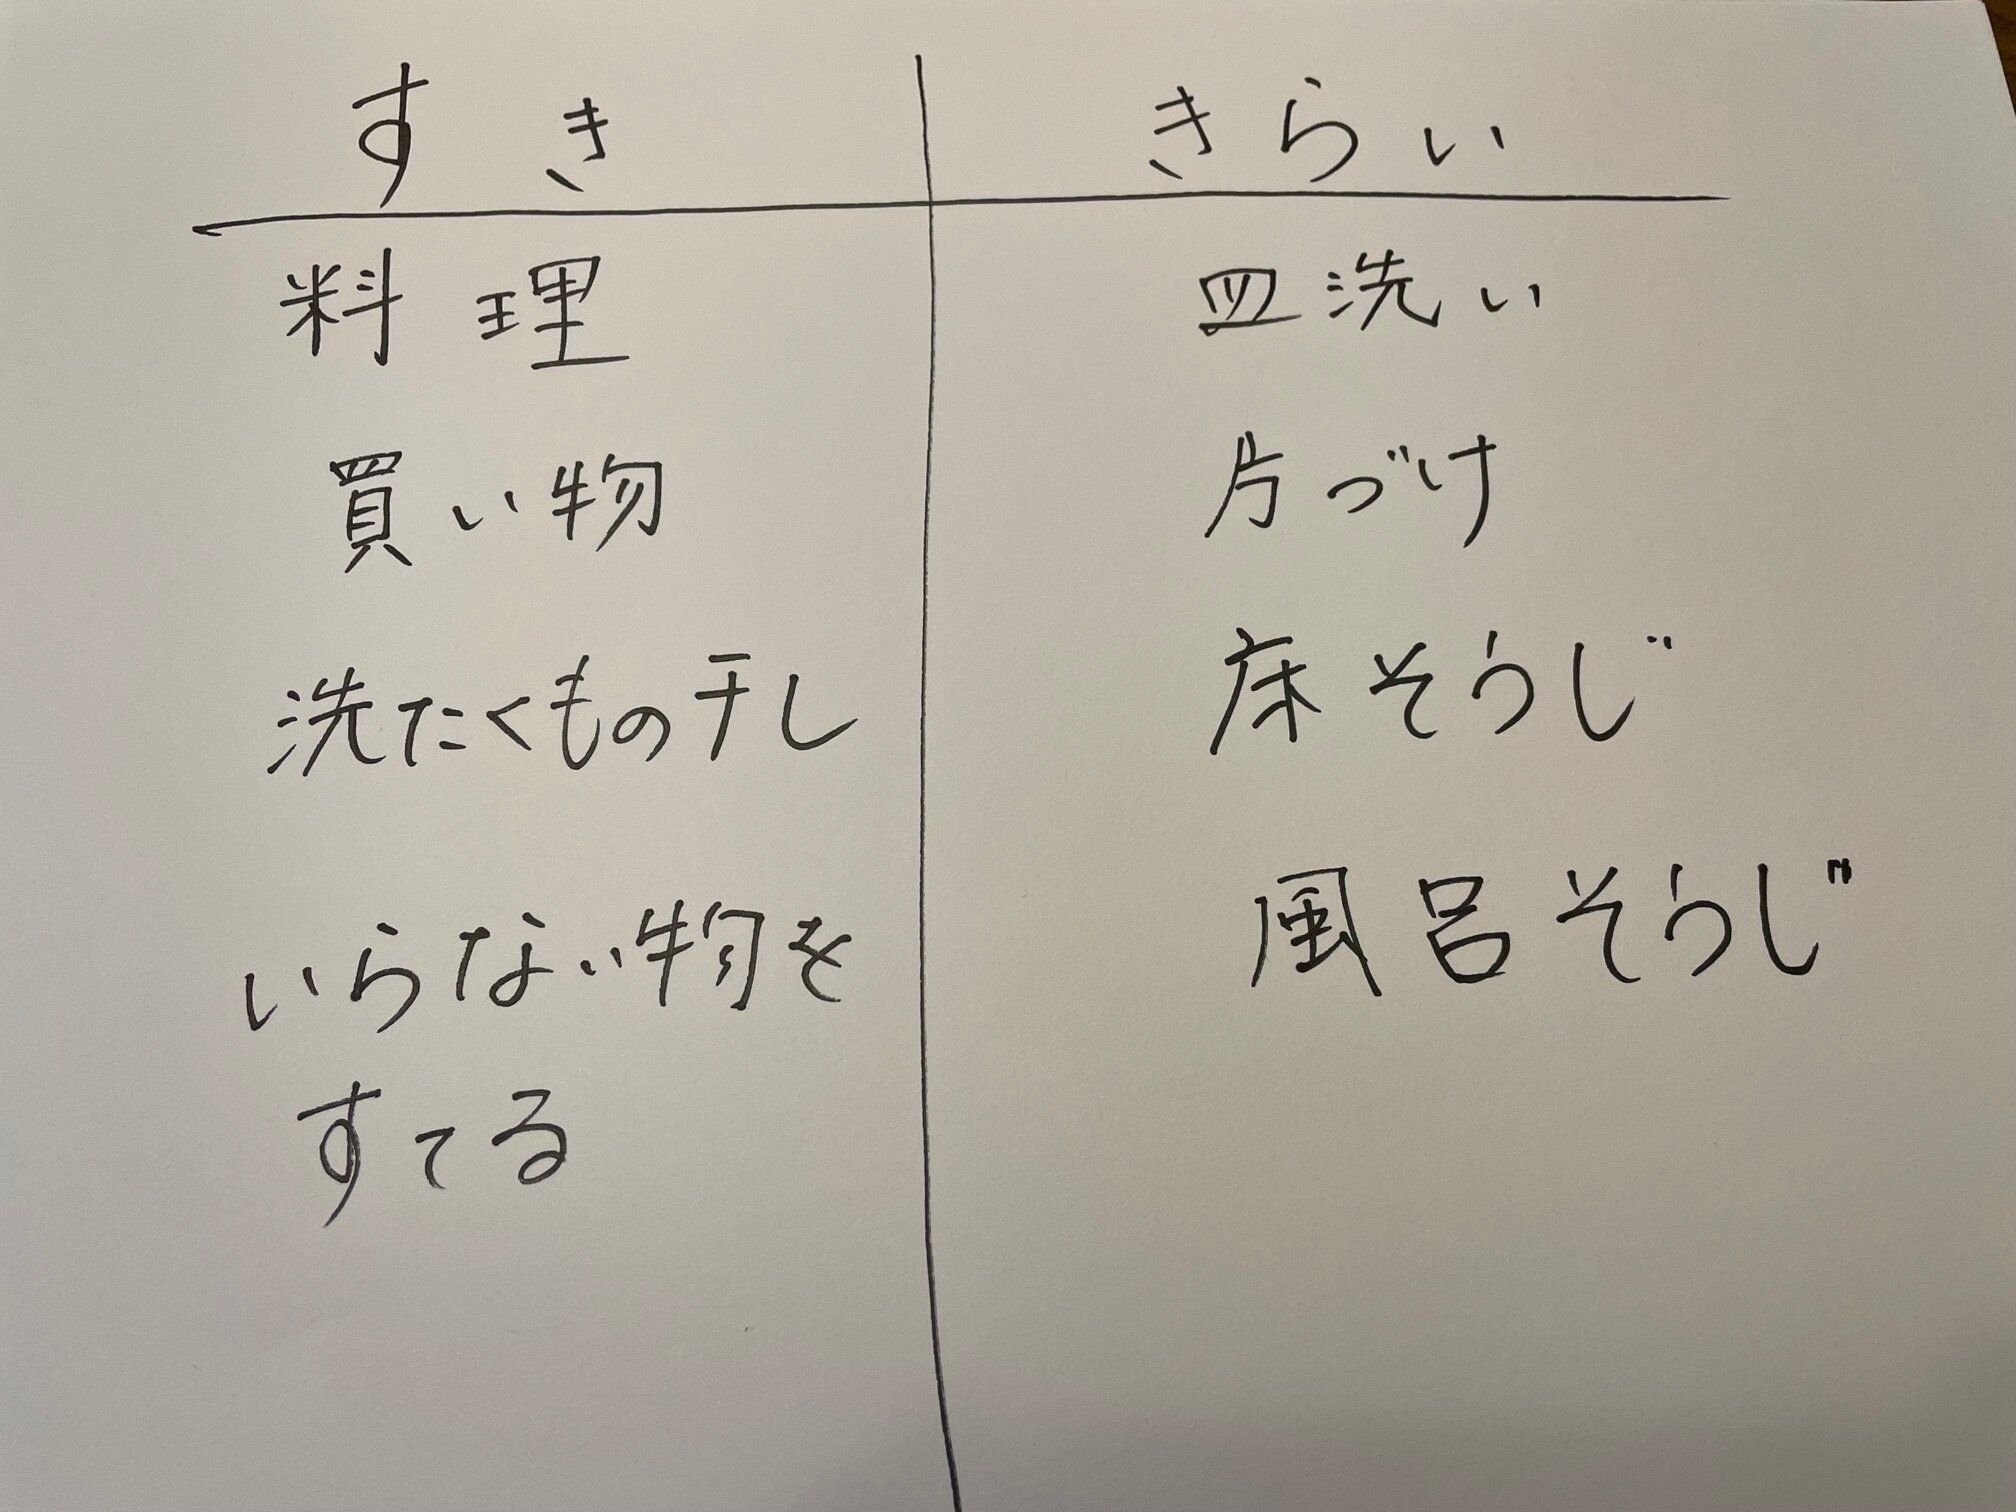 すき
きらい
料理
皿洗い
買い物
片づけ
洗たくもの干し
床そうじ
いらない物を
すてる
風呂そうじ